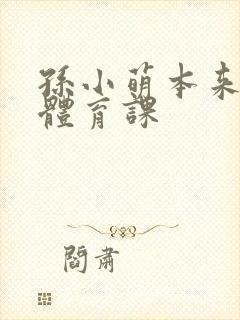 孫小萌本來
體育課
閻肅